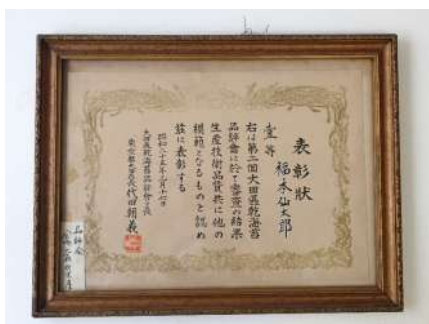 表彰狀
福本仙太郎
壹等
右は第二回大田區乾海苔
品評會に於て審査の結果
生産技術品質共に他の
模範となるものと認め
茲に表彰する
昭和二十五年二月十七日
大田區乾海苔品評會々長
東京都大田區長代田朝義
品評会